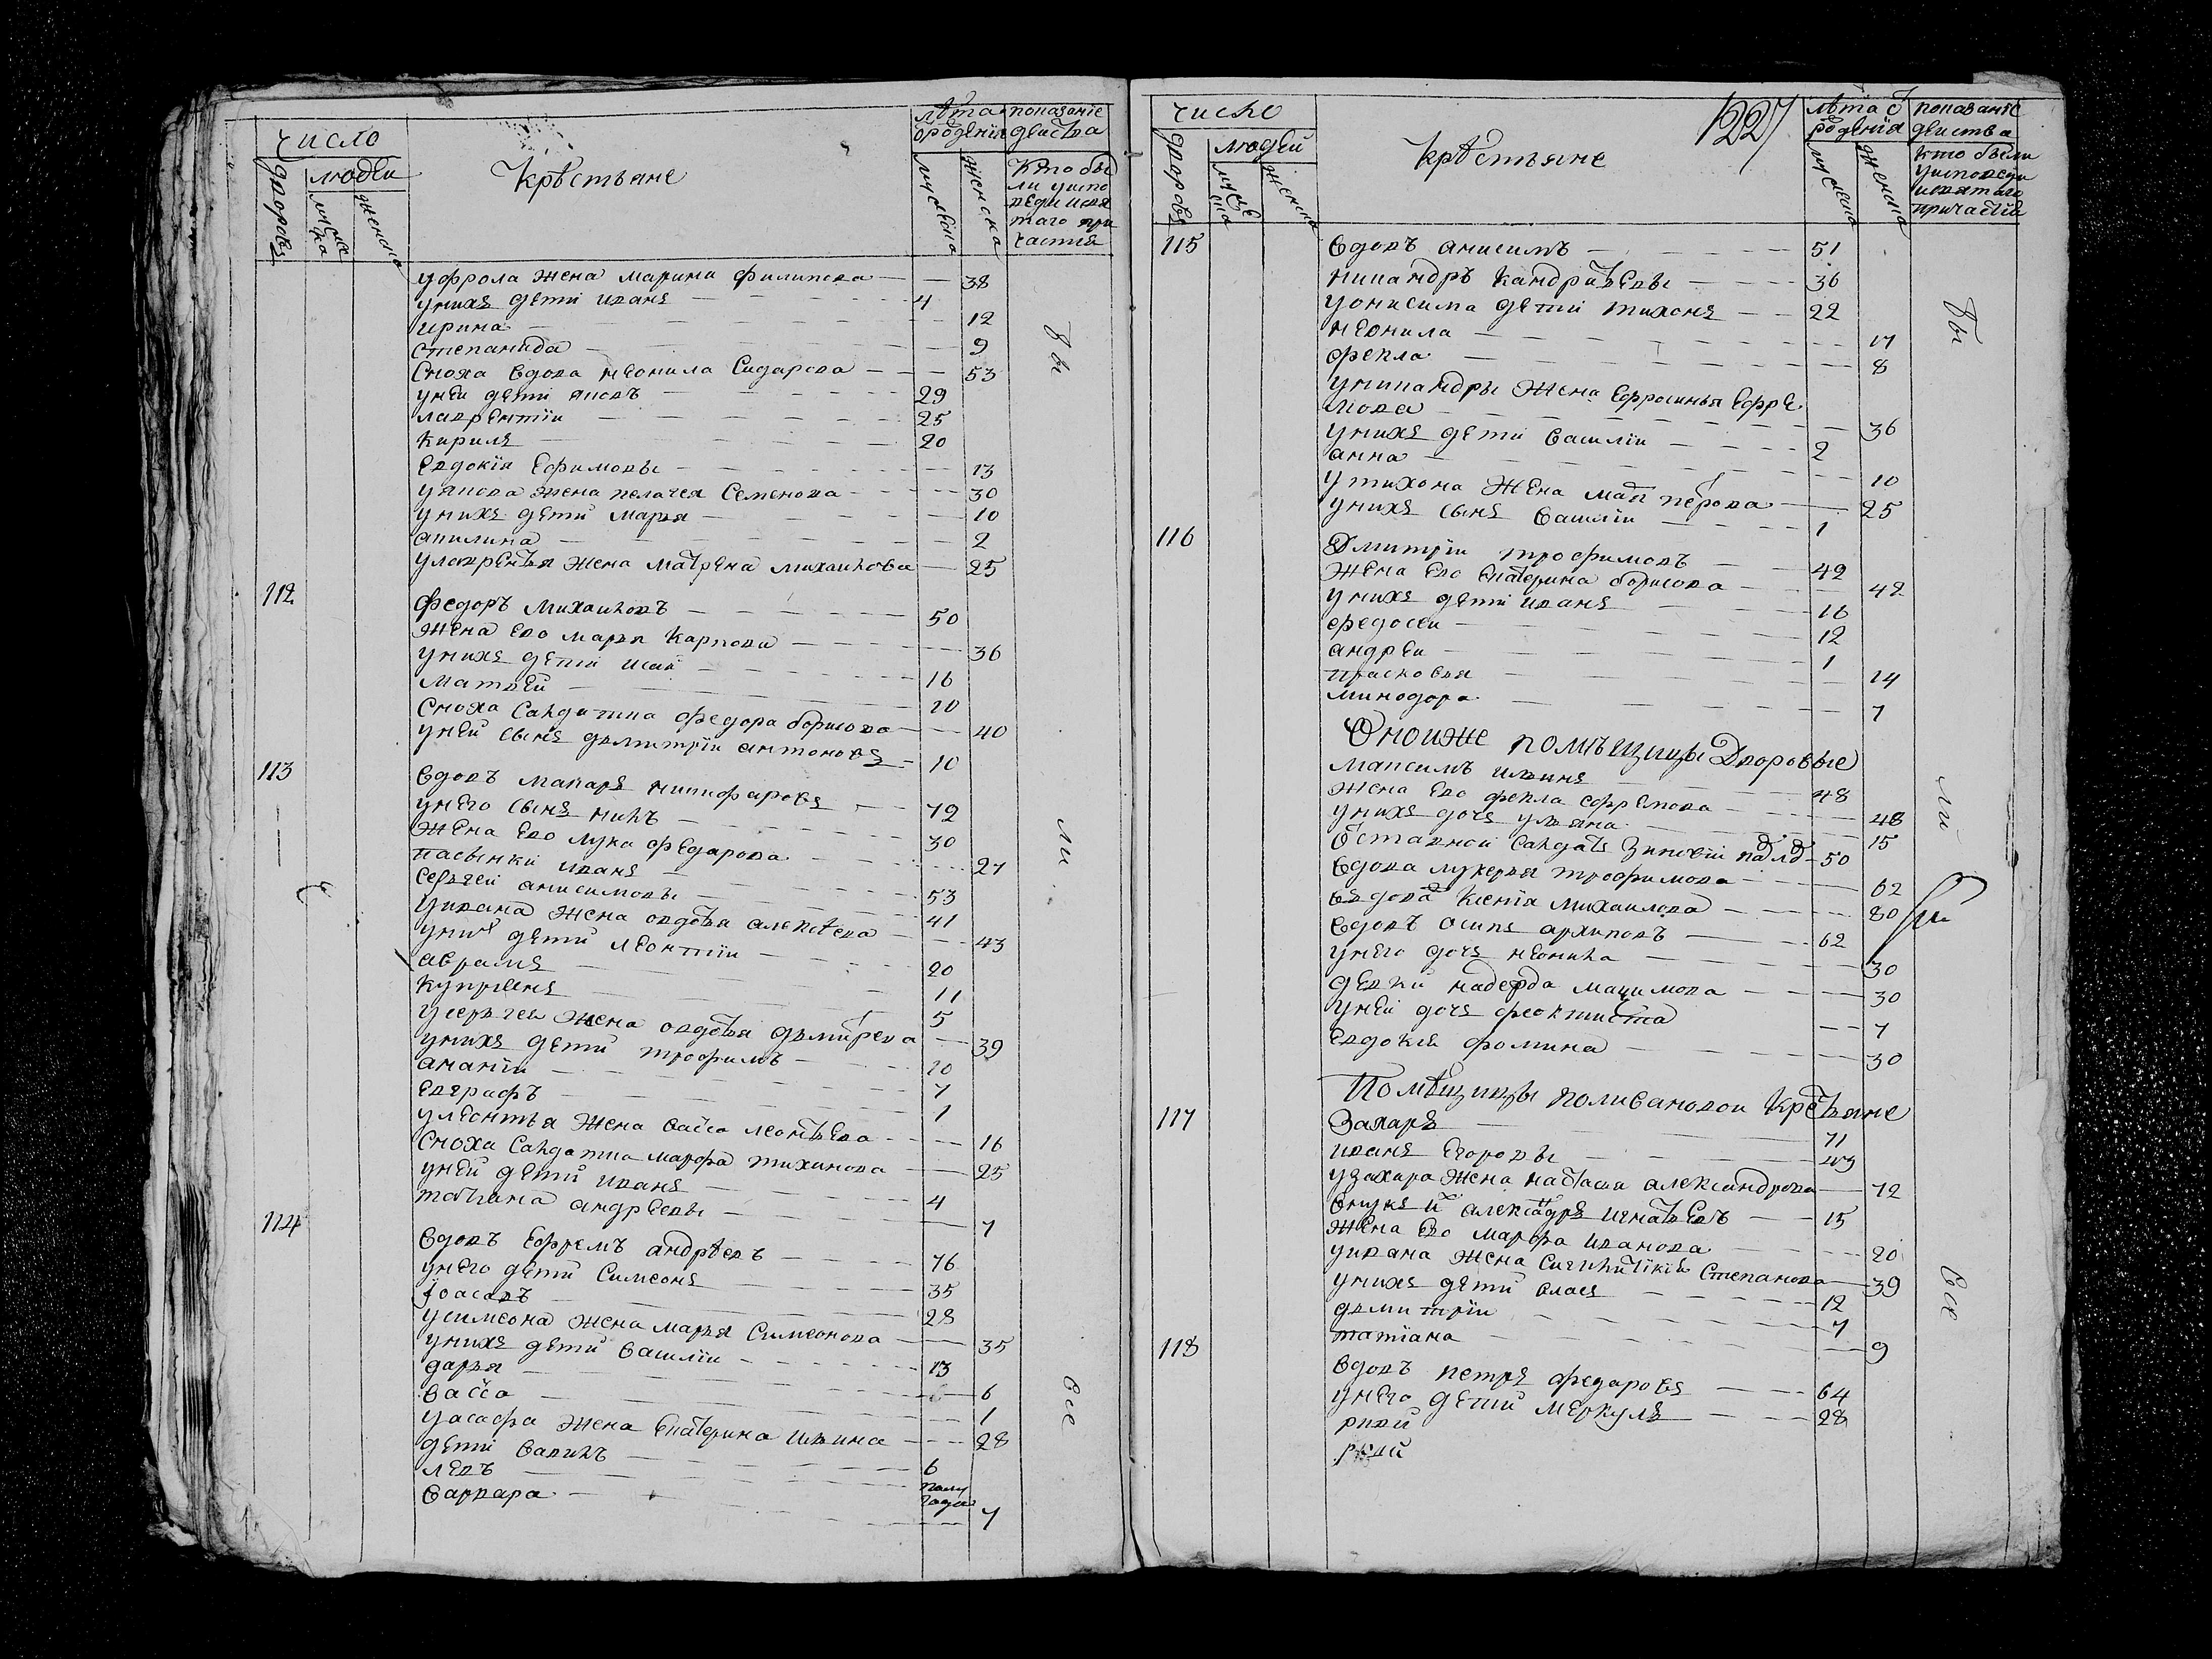 число
дворовъ
людеи
мужеска
женска
Крѣстьяне
лѣта о рожденiя
мужеска
женска
показанiе деиства
Кто бы
ли уиспо
веди исвя
таго при
частия
уфрола жена марина филипова 38
унихъ дети иванъ 4
ирина 12
степанида 9
сноха вдова неонила Сидарова 53
унеи дети яковъ 29
лаврентiи 25
Кирилъ 20
Евдокiя Ефимовы 13
уякова жена пелагея Семенова 30
унихъ дети марья 10
акилина 2
улаврентья жена матрена михаилова 25
112
федоръ михаиловъ 50
жена ево марья карпова 36
унихъ дети исаи 16
матвеи 10
сноха салдатка федора борисова 40
унеи сынъ дьмитрiи антоновъ 10
113
вдовъ макаръ никифаровъ 72
унего сынъ нилъ 30
жена ево лукия федарова 27
пасынки иванъ 53
сергѣеи анисимовы 41
уивана жена овдотья алексѣева 43
унихъ дети леонтiи 20
аврамъ 11
куприянъ 5
усергѣя жена овдотья дьмитрева 39
унихъ дети трофимъ 10
ананiи 7
Евграфъ 1
улеонтья жена васса леонтьева 16
сноха салдатка марфа тихинова 25
унеи дети иванъ 4
татиана андреевы 7
114
вдовъ Ефремъ андрѣевъ 76
унего дети Симеонъ 35
Iоасавъ 28
усимеона жена марья Симеонова 35
унихъ дети василiи 13
дарья 6
васса 1
уасафа жена Екатерина ильина 28
дети вавилъ 6
левъ полу года
варвара 7
бы
ли
все
число
дворовъ
людеи
мужеска
женска
крѣстьяне
1227
лѣта о рожденiя
мужеска
женска
показанiе деиства
кто были
уисповеди
исвятаго
причастiя
115
вдовъ анисимъ 51
никандръ Кандратьевы 36
уонисима дети тихонъ 22
неонила 17
фекла 8
уникандры жена Ефросинья Ефре
мова 36
унихъ дети василiи 2
анна 10
утихона жена петрова 25
унихъ сынъ василiи 1
116
Дмитрiи трофимовъ 42
жена ево Екатерина борисова 42
унихъ дети иванъ 16
федосеи 12
андреи 1
прасковья 14
минодора 7
Оноиже помѣщицы Дворовые
максимъ ильинъ 48
жена ево фекла ефремова 48
унихъ дочъ ульяна 15
Отставнои салдатъ зиновiи 50
вдова лукерья трофимова 62
вдова Ксенiя михаилова 80
вдовъ осипъ архиповъ 62
унего дочъ неонила 30
девки надежда мацимова 30
унеи дочъ феоктиста 7
евдокия фомина 30
Помѣщицы поливановои Крѣстьяне
117
Захаръ 71
иванъ Егоровы
узахара жена настасия александрова 72
внукъ александръ игнатьевъ 15
жена ево марфа иванова 20
уивана жена Степанова 39
унихъ дети власъ 12
дьмитрiи 7
татiана 9
118
вдовъ петръ федаровъ 64
унего дети меркулъ 28
бы
ли
все